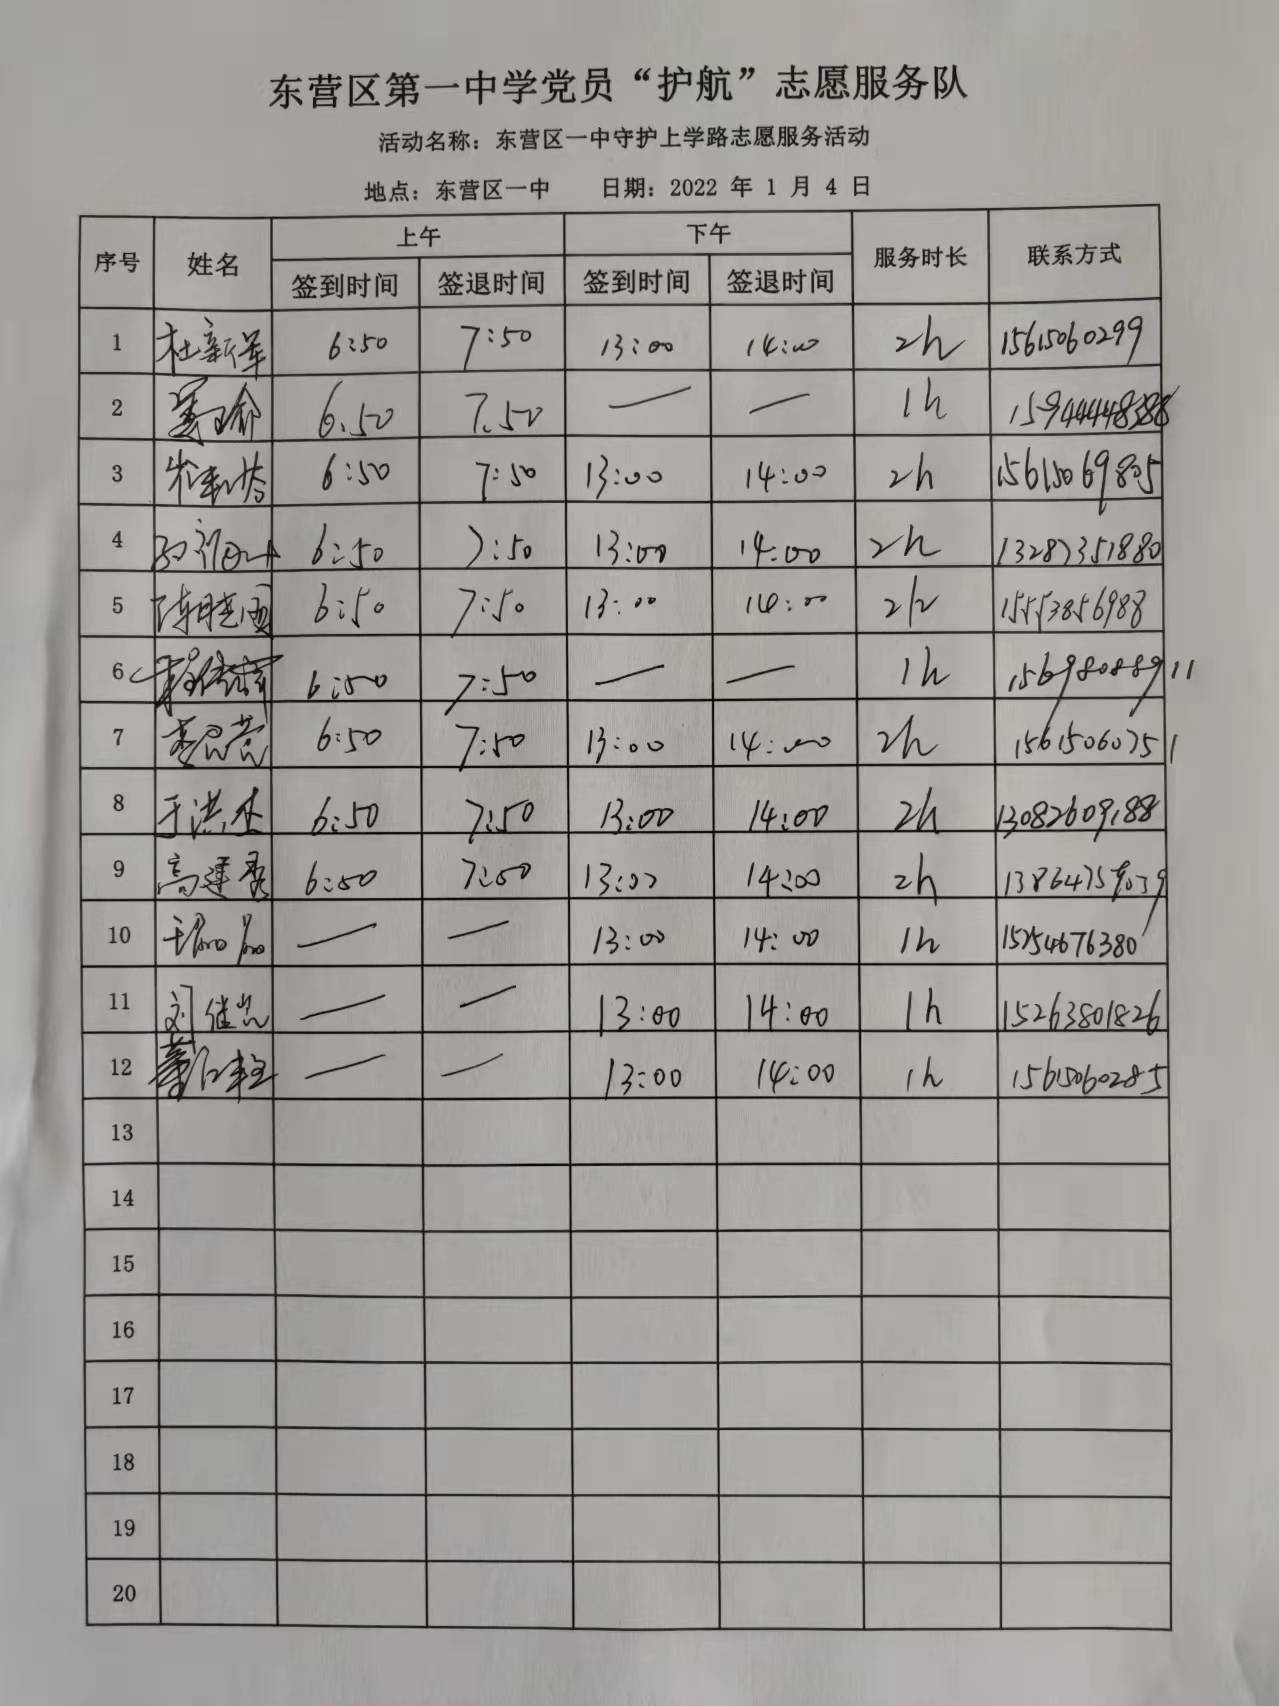 东营区第一中学党员“护航”志愿服务队
活动名称：东营区一中守护上学路志愿服务活动
地点：东营区一中 日期：2022 年 1 月 4 日
序号 姓名 上午 下午 服务时长 联系方式
签到时间 签退时间 签到时间 签退时间
1 杜新军 6:50 7:50 13:00 14:00 2h 15615060299
2 6.50 7.50 — — 1h
3 6:50 7:50 13:00 14:00 2h 15615069805
4 6:50 7:50 13:00 14:00 2h 13287351880
5 陈晓雨 6:50 7:50 13:00 14:00 2h 15553856988
6 6:50 7:50 — — 1h 15698088911
7 6:50 7:50 13:00 14:00 2h 15615060751
8 于洪杰 6:50 7:50 13:00 14:00 2h 13082609188
9 高建勇 6:50 7:50 13:00 14:00 2h
10 — — 13:00 14:00 1h 15254676380
11 — — 13:00 14:00 1h 15263801826
12 — — 13:00 14:00 1h 15615060285
13
14
15
16
17
18
19
20